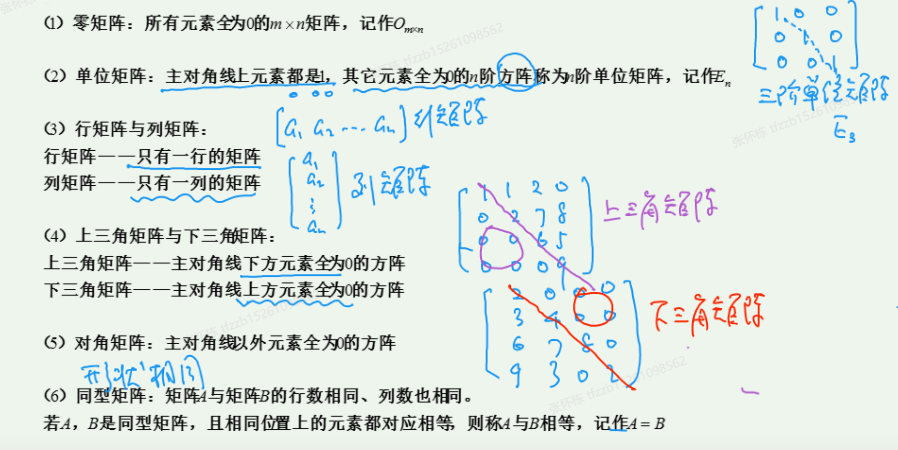 (1) 零矩阵：所有元素全为0的m×n矩阵，记作Om×n
(2) 单位矩阵：主对角线上元素都是1，其它元素全为0的n阶方阵称为n阶单位矩阵，记作En
[1 0 0
0 1 0
0 0 1]
三阶单位矩阵
E3
(3) 行矩阵与列矩阵：
[a1 a2 ⋯ an] 行矩阵
行矩阵——只有一行的矩阵
列矩阵——只有一列的矩阵
[a1
a2
⋮
an] 列矩阵
(4) 上三角矩阵与下三角矩阵：
上三角矩阵——主对角线下方元素全为0的方阵
下三角矩阵——主对角线上方元素全为0的方阵
[1 1 2 0
0 2 7 8
0 0 6 5
0 0 0 9]
上三角矩阵
[2 0 0 0
3 4 0 0
6 7 8 0
9 3 0 2]
下三角矩阵
(5) 对角矩阵：主对角线以外元素全为0的方阵
形状相同
(6) 同型矩阵：矩阵A与矩阵B的行数相同、列数也相同。
若A，B是同型矩阵，且相同位置上的元素都对应相等，则称A与B相等，记作A = B
张怀栋 tfzzb15261098562